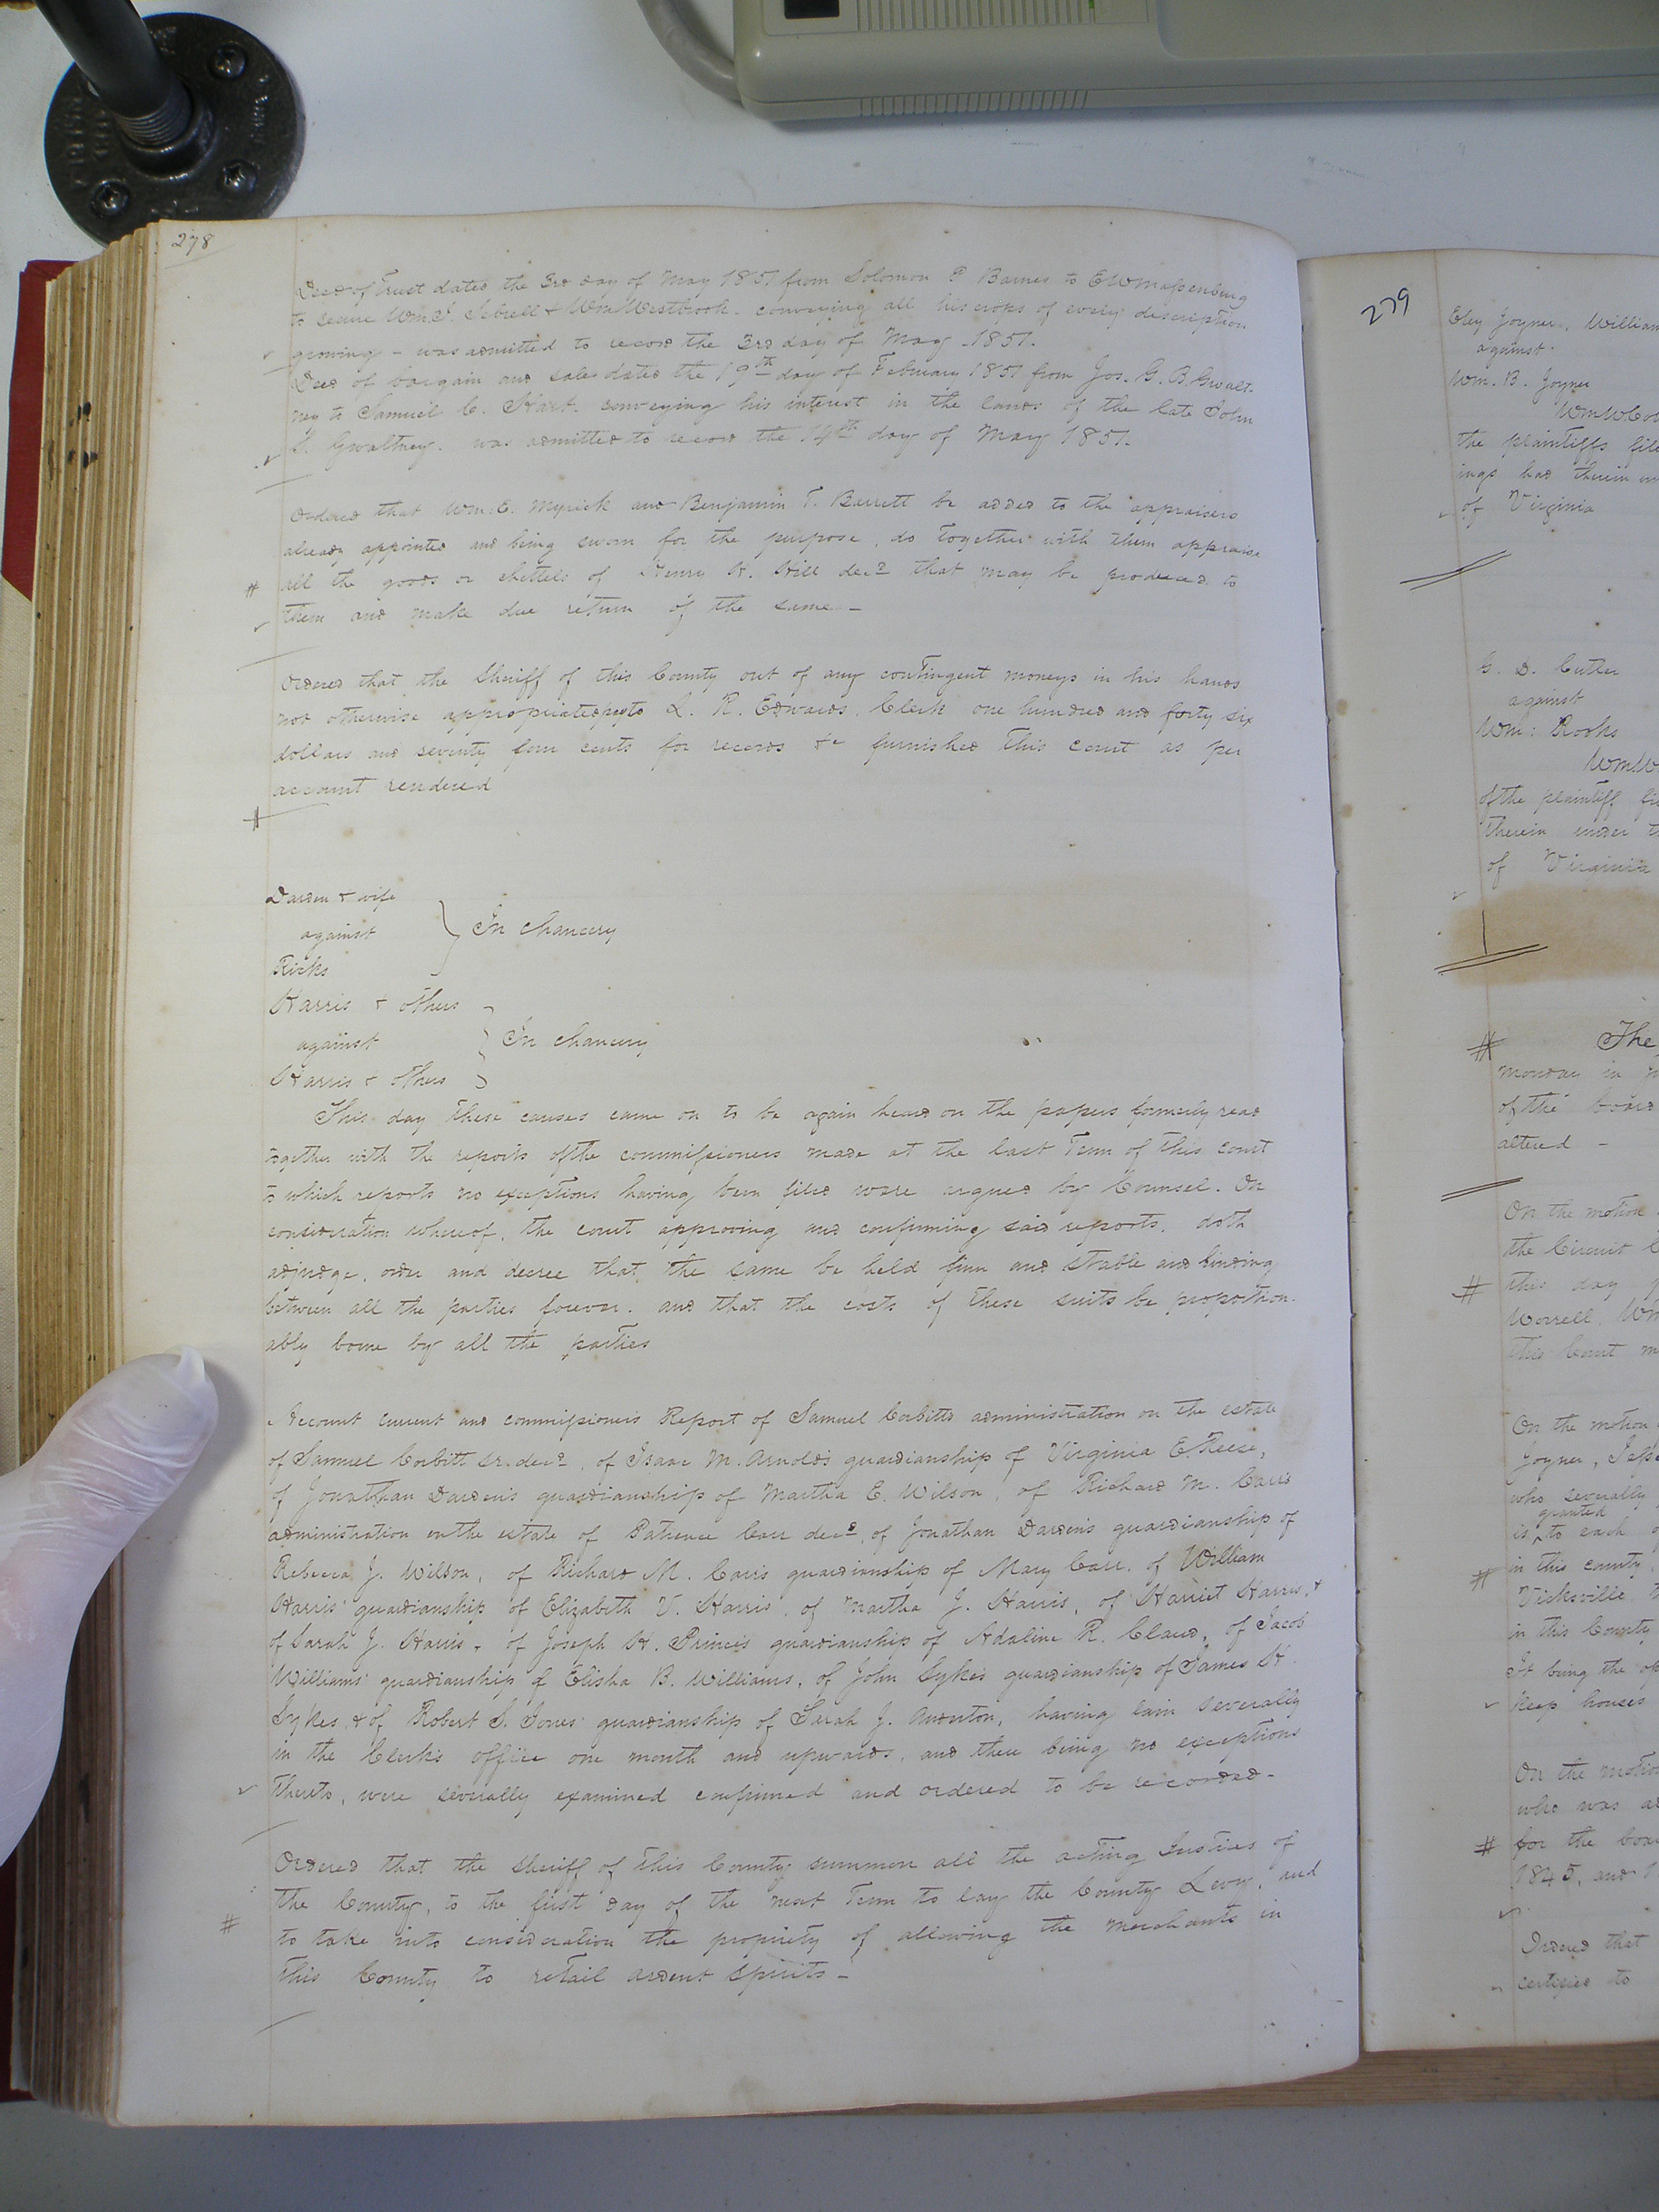 278
Deed of Trust dated the 3rd day of May 1851 from Solomon P Barnes to EWMassenburg
to secure Wm J. Sebrell & Wm Westbrook. conveying all his crops of every description
growing - was admitted to record the 3rd day of May 1851.
Deed of bargain and sale dated the 19th day of February 1851 from Jos. G. B. Gwalt-
ney to Samuel C. Hart. conveying his interest in the lands of the late John
Gwaltney. was admitted to record the 14th day of May 1851.
Ordered that Wm. E. Myrick and Benjamin T. Barrett be added to the appraisers
already appointed and being sworn for the purpose, do together with them appraise
# all the goods or chettels of Henry H. Hill decd that may be produced to
them and make due return of the same -
Ordered that the Sheriff of this County out of any contingent moneys in his hands
not otherwise appropriated pay to L. R. Edwards, Clerk one hundred and forty six
dollars and seventy four cents for records &c furnished this court as per
account rendered
#
Darden & wife
against } In Chancery
Ricks
Harris & others
against } In Chancery
Harris & others
This day these causes came on to be again heard on the papers formerly read
together with the reports of the commissioners made at the last Term of this court
to which reports no exceptions having been filed were argued by Counsel. On
consideration whereof, the court approving and confirming said reports, doth
adjudge, order and decree that the same be held firm and stable and binding
between all the parties forever. and that the costs of these suits be proportion-
ably borne by all the parties
Account current and commissioners Report of Samuel Corbitts administration on the estate
of Samuel Corbitt sr. decd, of Isaac M. Arnold's guardianship of Virginia E. Reese,
of Jonathan Darden's guardianship of Martha E. Wilson, of Richard M. Carrs
administration on the estate of Patience Carr decd, of Jonathan Darden's guardianship of
Rebecca J. Wilson, of Richard M. Carr's guardianship of Mary Carr, of William
Harris' guardianship of Elizabeth V. Harris, of Martha J. Harris, of Harriet Harris, &
of Sarah J. Harris, of Joseph H. Prince's guardianship of Adaline R. Claud, of Jacob
Williams' guardianship of Elisha B. Williams, of John Sykes guardianship of James H.
Sykes, & of Robert S. Jones' guardianship of Sarah J. having lain severally
in the Clerk's office one month and upwards, and there being no exceptions
thereto, were severally examined confirmed and ordered to be recorded-
Ordered that the sheriff of this County summon all the acting Justices of
the County, to the first day of the next Term to lay the County Levy, and
# to take into consideration the propriety of allowing the merchants in
this County to retail ardent spirits -
279
Eley Joyner, William
against
Wm. B. Joyner
the plaintiffs
ings had therein
of Virginia
G. D. Cutler
against
Wm: Rooks
of the plaintiff
therein under
of Virginia
# The
Monday in
of the board
altered -
On the motion
the Circuit
# this day
Worrell, Wm
this Court
On the motion
Joyner,
who severally
granted
is to each
# in this county
Vicksville
in this County
It being the
keep houses
On the motion
who was
# for the
1845, and
Ordered that
certified to